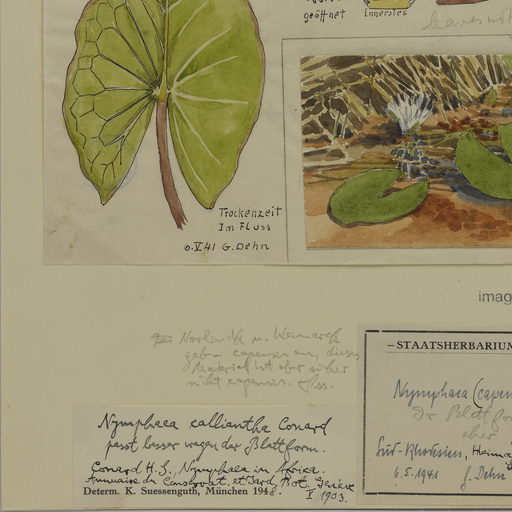 geöffnet
Innerstes
leaves not
Trockenzeit
Im Fluss
0.V.41 G. Dehn
imag
Norlindh u. Weimarck
geben capensis an, dieses
Material ist aber sicher
nicht capensis.
– STAATSHERBARIUM
Nymphaea (capen
Die Blattfor
aber
Süd-Rhodesien,
6.5.1941 G. Dehn
Nymphaea calliantha Conard
passt besser wegen der Blattform.
Conard H.S., Nymphaea in Africa.
Annuaire du Conservat. et Jard. Bot. Genève
Determ. K. Suessenguth, München 1948. V. 1903.